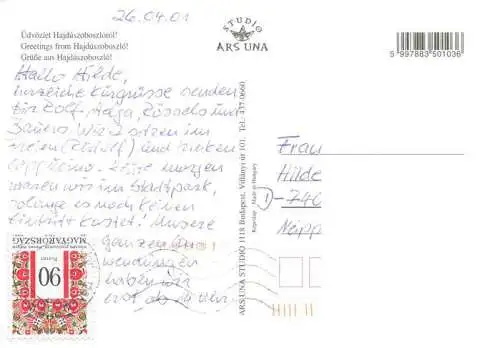 26.04.01
Üdvözlet Hajdúszoboszlóról!
Greetings from Hajdúszoboszló!
Grüße aus Hajdúszoboszló!
Hallo Hilde,
herzliche Kurgrüsse senden
Dir Rolf, Helga, Rössels und
Bauers. Wir sitzen im
Freien und trinken
Cappucino. Heute morgen
waren wir im Stadtpark,
solange es noch keinen
Eintritt kostet! Unsere
ganzen An
wendungen
haben wir
erst ab 11 Uhr.
STUDIO
ARS UNA
5 997883 501036
ARS UNA STUDIO 1118 Budapest, Villányi út 101. Tel. 457-0660
Képeslap - Made in Hungary
Frau
Hilde
D-740
MAGYARORSZÁG
90